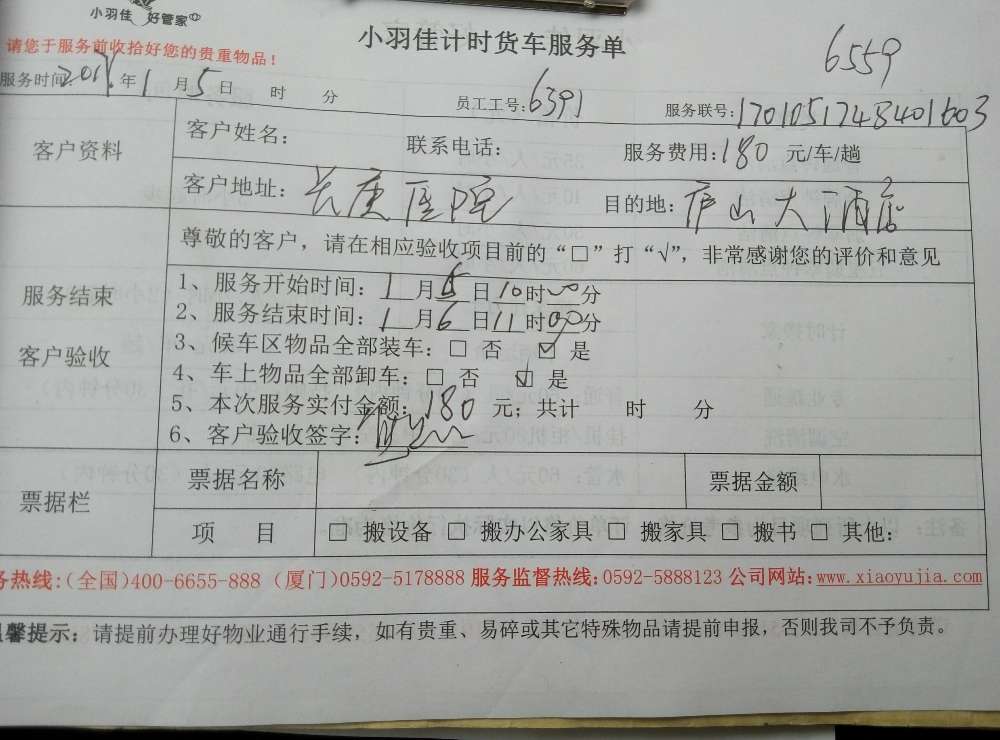 小羽佳 好管家
请您于服务前收拾好您的贵重物品！
小羽佳计时货车服务单
6559
服务时间：2017年1月5日 时 分
员工工号：6391
服务联号：1701051748401603
客户资料
客户姓名： 联系电话： 服务费用：180 元/车/趟
客户地址：长庚医院 目的地：庐山大酒店
服务结束
客户验收
尊敬的客户，请在相应验收项目前的“□”打“√”，非常感谢您的评价和意见
1、服务开始时间：1月6日10时00分
2、服务结束时间：1月6日11时00分
3、候车区物品全部装车：□ 否 ☑ 是
4、车上物品全部卸车：□ 否 ☑ 是
5、本次服务实付金额：180 元；共计 时 分
6、客户验收签字：
票据栏
票据名称 票据金额
项 目 □ 搬设备 □ 搬办公家具 □ 搬家具 □ 搬书 □ 其他：
务热线：(全国)400-6655-888 (厦门)0592-5178888 服务监督热线：0592-5888123 公司网站：www.xiaoyujia.com
馨提示：请提前办理好物业通行手续，如有贵重、易碎或其它特殊物品请提前申报，否则我司不予负责。